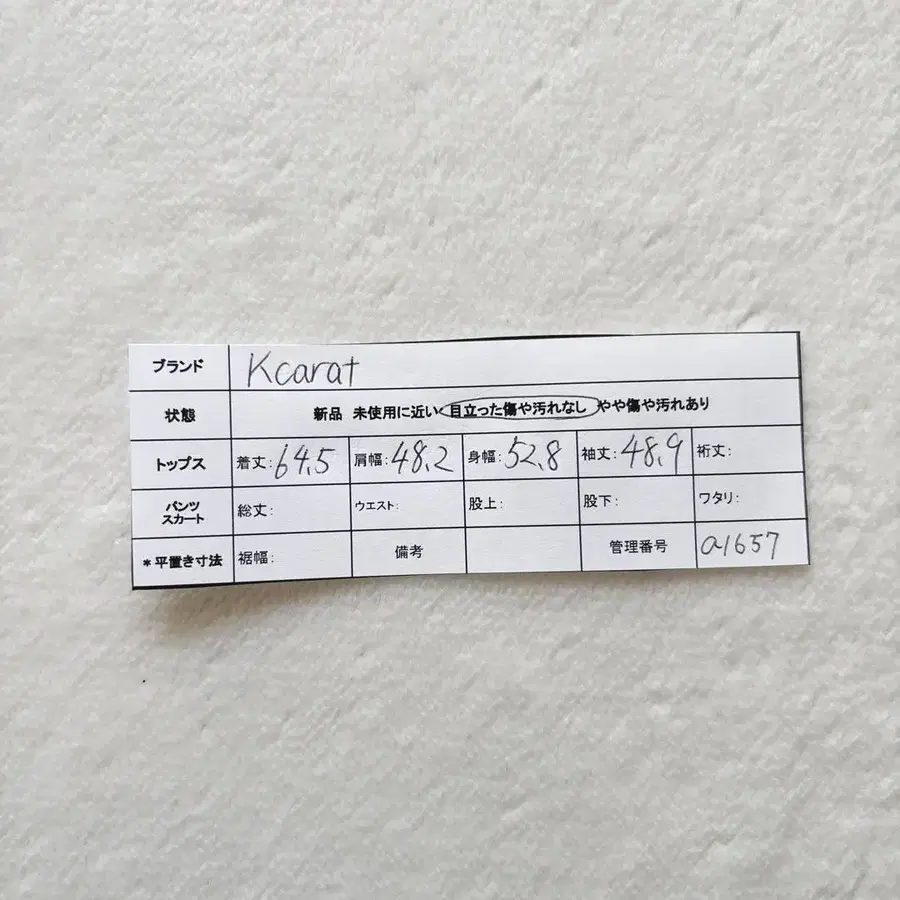 ブランド Kcarat
状態 新品 未使用に近い 目立った傷や汚れなし やや傷や汚れあり
トップス 着丈:64.5 肩幅:48.2 身幅:52.8 袖丈:48.9 裄丈:
パンツ スカート 総丈: ウエスト: 股上: 股下: ワタリ:
*平置き寸法 裾幅: 備考 管理番号 a1657